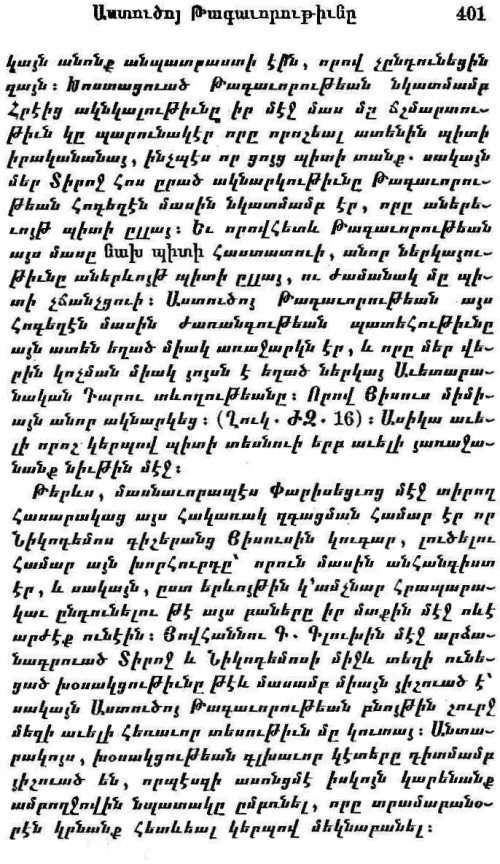 Աստուծոյ Թագաւորութիւնը 401
կայն անոնք անպատրաստի էին, որով չընդունեցին
զայն։ Խոստացուած Թագաւորութեան նկատմամբ
Հրէից ակնկալութիւնը իր մէջ մաս մը ճշմարտու-
թիւն կը պարունակէր որը որոշեալ ատենին պիտի
իրականանայ, ինչպէս որ ցոյց պիտի տանք. սակայն
մեր Տիրոջ հոս ըրած ակնարկութիւնը Թագաւորու-
թեան հոգեղէն մասին նկատմամբ էր, որը աներե-
ւոյթ պիտի ըլլայ։ Եւ որովհետև Թագաւորութեան
այս մասը նախ պիտի հաստատուի, անոր ներկայու-
թիւնը աներևոյթ պիտի ըլլայ, ու ժամանակ մը պի-
տի չճանչցուի։ Աստուծոյ Թագաւորութեան այս
հոգեղէն մասին ժառանգութեան պատեհութիւնը
այն ատեն եղած միակ առաջարկն էր, և որը մեր վե-
րին կոչման միակ յոյսն է եղած ներկայ Աւետարա-
նական Դարու տևողութեանը։ Որով Յիսուս միմի-
այն անոր ակնարկեց։ (Ղուկ. ԺԶ. 16)։ Ասիկա աւե-
լի որոշ կերպով պիտի տեսնուի երբ աւելի յառաջա-
նանք նիւթին մէջ։
Թերևս, մասնաւորապէս Փարիսեցւոց մէջ տիրող
հասարակաց այս հակառակ զգացման համար էր որ
Նիկոդեմոս գիշերանց Յիսուսին կուգար, լուծելու
համար այն խորհուրդը՝ որուն մասին անհանգիստ
էր, և սակայն, ըստ երևոյթին կ՚ամչնար հրապարա-
կաւ ընդունելու թէ այս բաները իր մտքին մէջ ոևէ
արժէք ունէին։ Յովհաննու Գ. Գլուխին մէջ արձա-
նագրուած Տիրոջ և Նիկոդեմոսի միջև տեղի ունե-
ցած խօսակցութիւնը թէև մասամբ միայն յիշուած է՝
սակայն Աստուծոյ Թագաւորութեան բնոյթին շուրջ
մեզի աւելի հեռաւոր տեսութիւն մը կուտայ։ Անտա-
րակոյս, խօսակցութեան գլխաւոր կէտերը դիտմամբ
յիշուած են, որպէսզի ասոնցմէ իսկոյն կարենանք
ամբողջովին նպատակը ըմբռնել, որը տրամաբանօ-
րէն կրնանք հետևեալ կերպով մեկնաբանել։